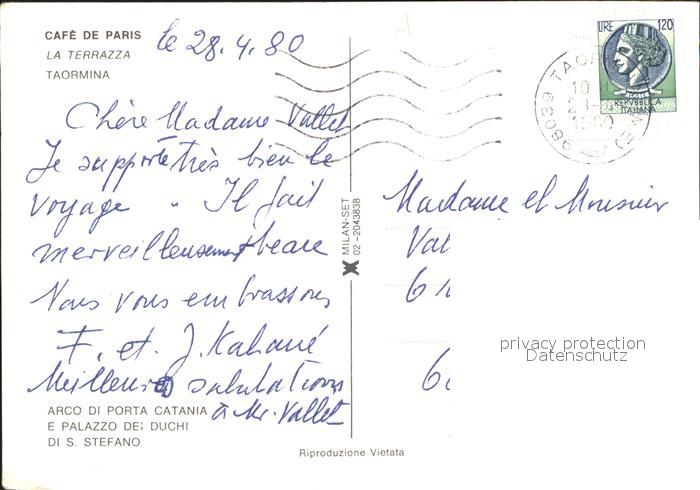 CAFÈ DE PARIS
LA TERRAZZA
TAORMINA
le 28.4.80
Chère Madame Vallet
Je supporte très bien le
voyage. Il fait
merveilleusement beau
Nous vous embrassons
F. et J. Kahané
Meilleures salutations
à Mr. Vallet
ARCO DI PORTA CATANIA
E PALAZZO DEI DUCHI
DI S. STEFANO
MILAN-SET
02 - 2043838
Riproduzione Vietata
LIRE 120
REPVBBLICA
ITALIANA
98039 TAOR (ME)
10
1980
Madame et Monsieur
Val
6
6
privacy protection
Datenschutz